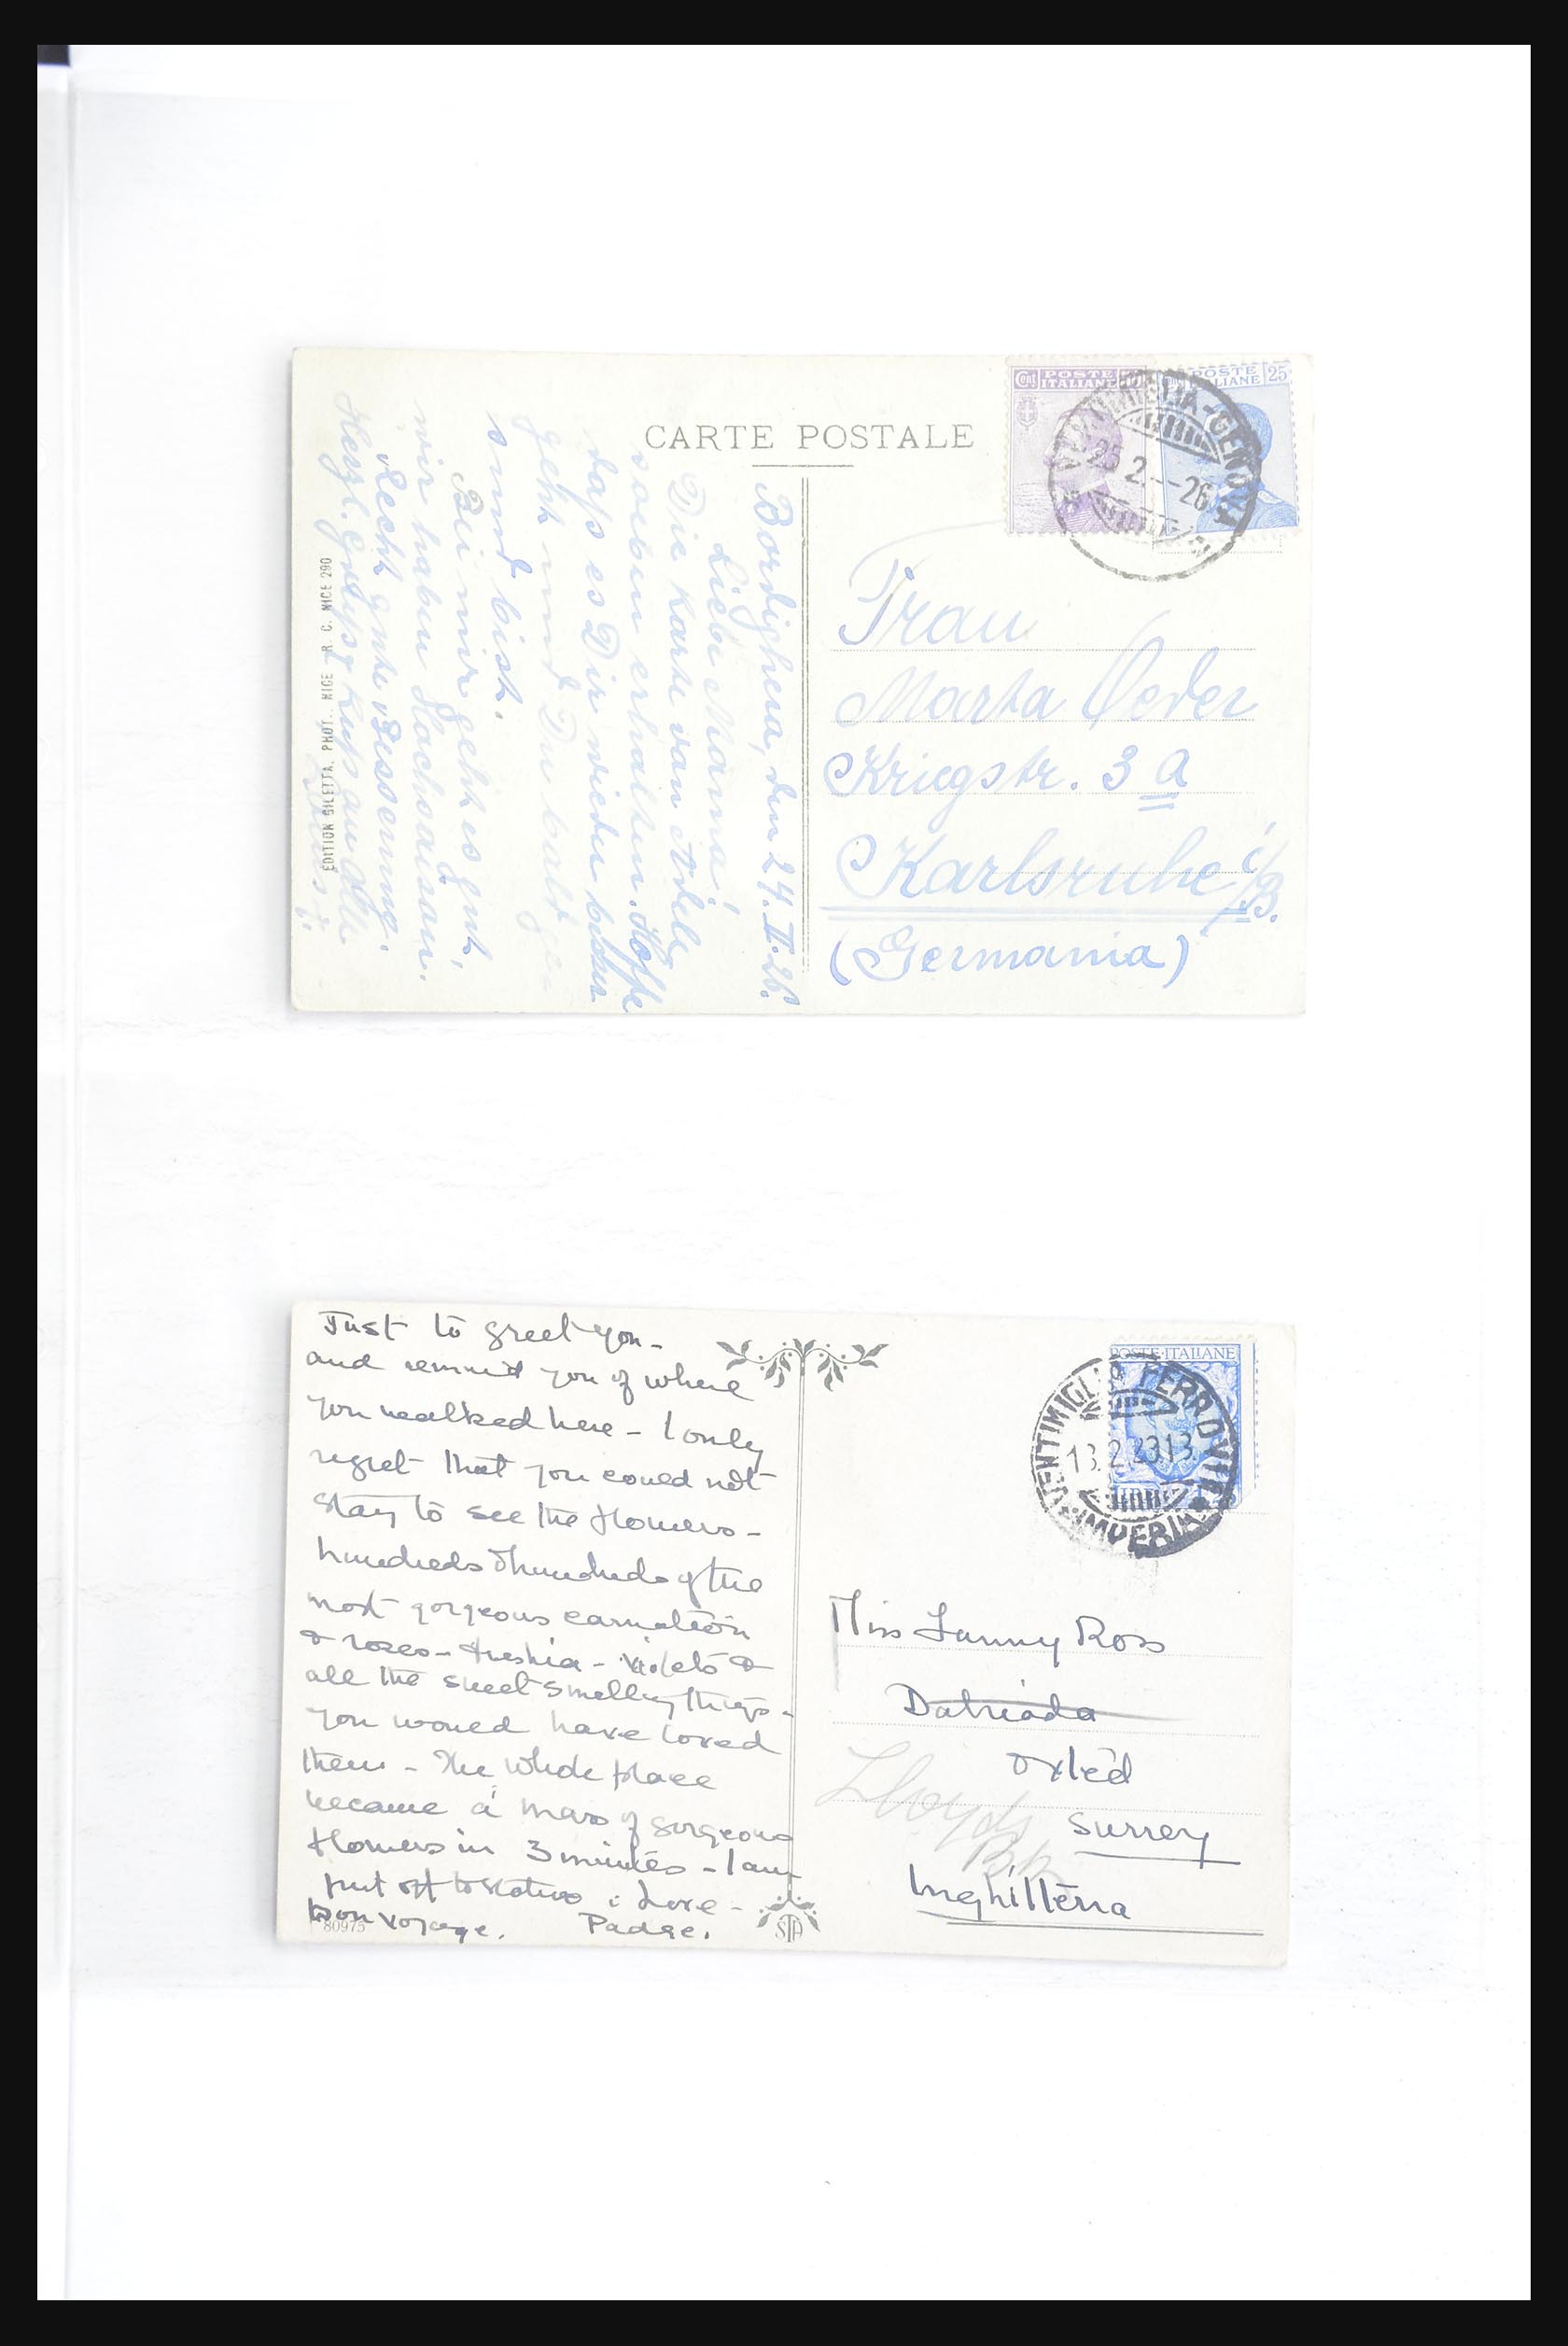 CARTE POSTALE
Cent POSTE
ITALIANE
POSTE 25
ITALIANE
VENTIMIGLIA-GENOVA
25 2.--26
Bordighera, den 24.II.26.
Liebe Mama!
Die Karte von Adele
soeben erhalten. Hoffe
daß es Dir wieder besser
geht und Du bald ge-
sund bist.
Bei mir geht es gut,
wir haben Hochsaison.
Recht gute Besserung.
Herzl. Gruß & Kuß an alle
EDITION GILETTA. PHOT.. NICE R. C. NICE 290
Frau
Marta Oeder
Kriegstr. 3 a
Karlsruhe i/B.
(Germania)
Just to greet you -
and remind you of where
you walked here - I only
regret that you could not
stay to see the flowers -
hundreds & hundreds of the
most gorgeous carnation
& roses - freshia - violets &
all the sweet smelling things -
you would have loved
them - The whole place
became a mass of gorgeous
flowers in 3 minutes - I am
just off to : Love -
bon voyage. Padre.
80975
STA
POSTE·ITALIANE
VENTIMIGLIA FERROVIA
13.2.2313
IMPERIA
Miss Fanny Ross
Oxted
Surrey
Inghilterra
Lloyds
Bk